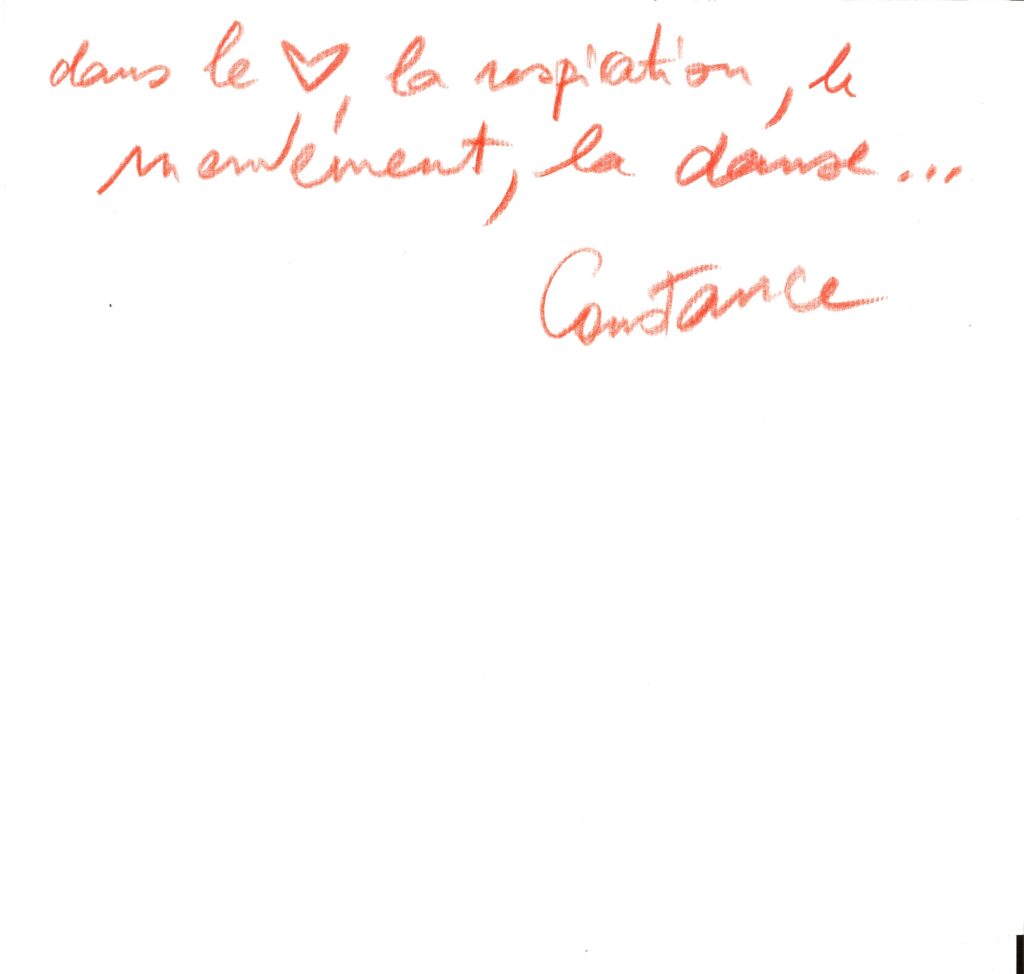 dans le ♡, la respiration, le
mouvement, la danse...
Constance